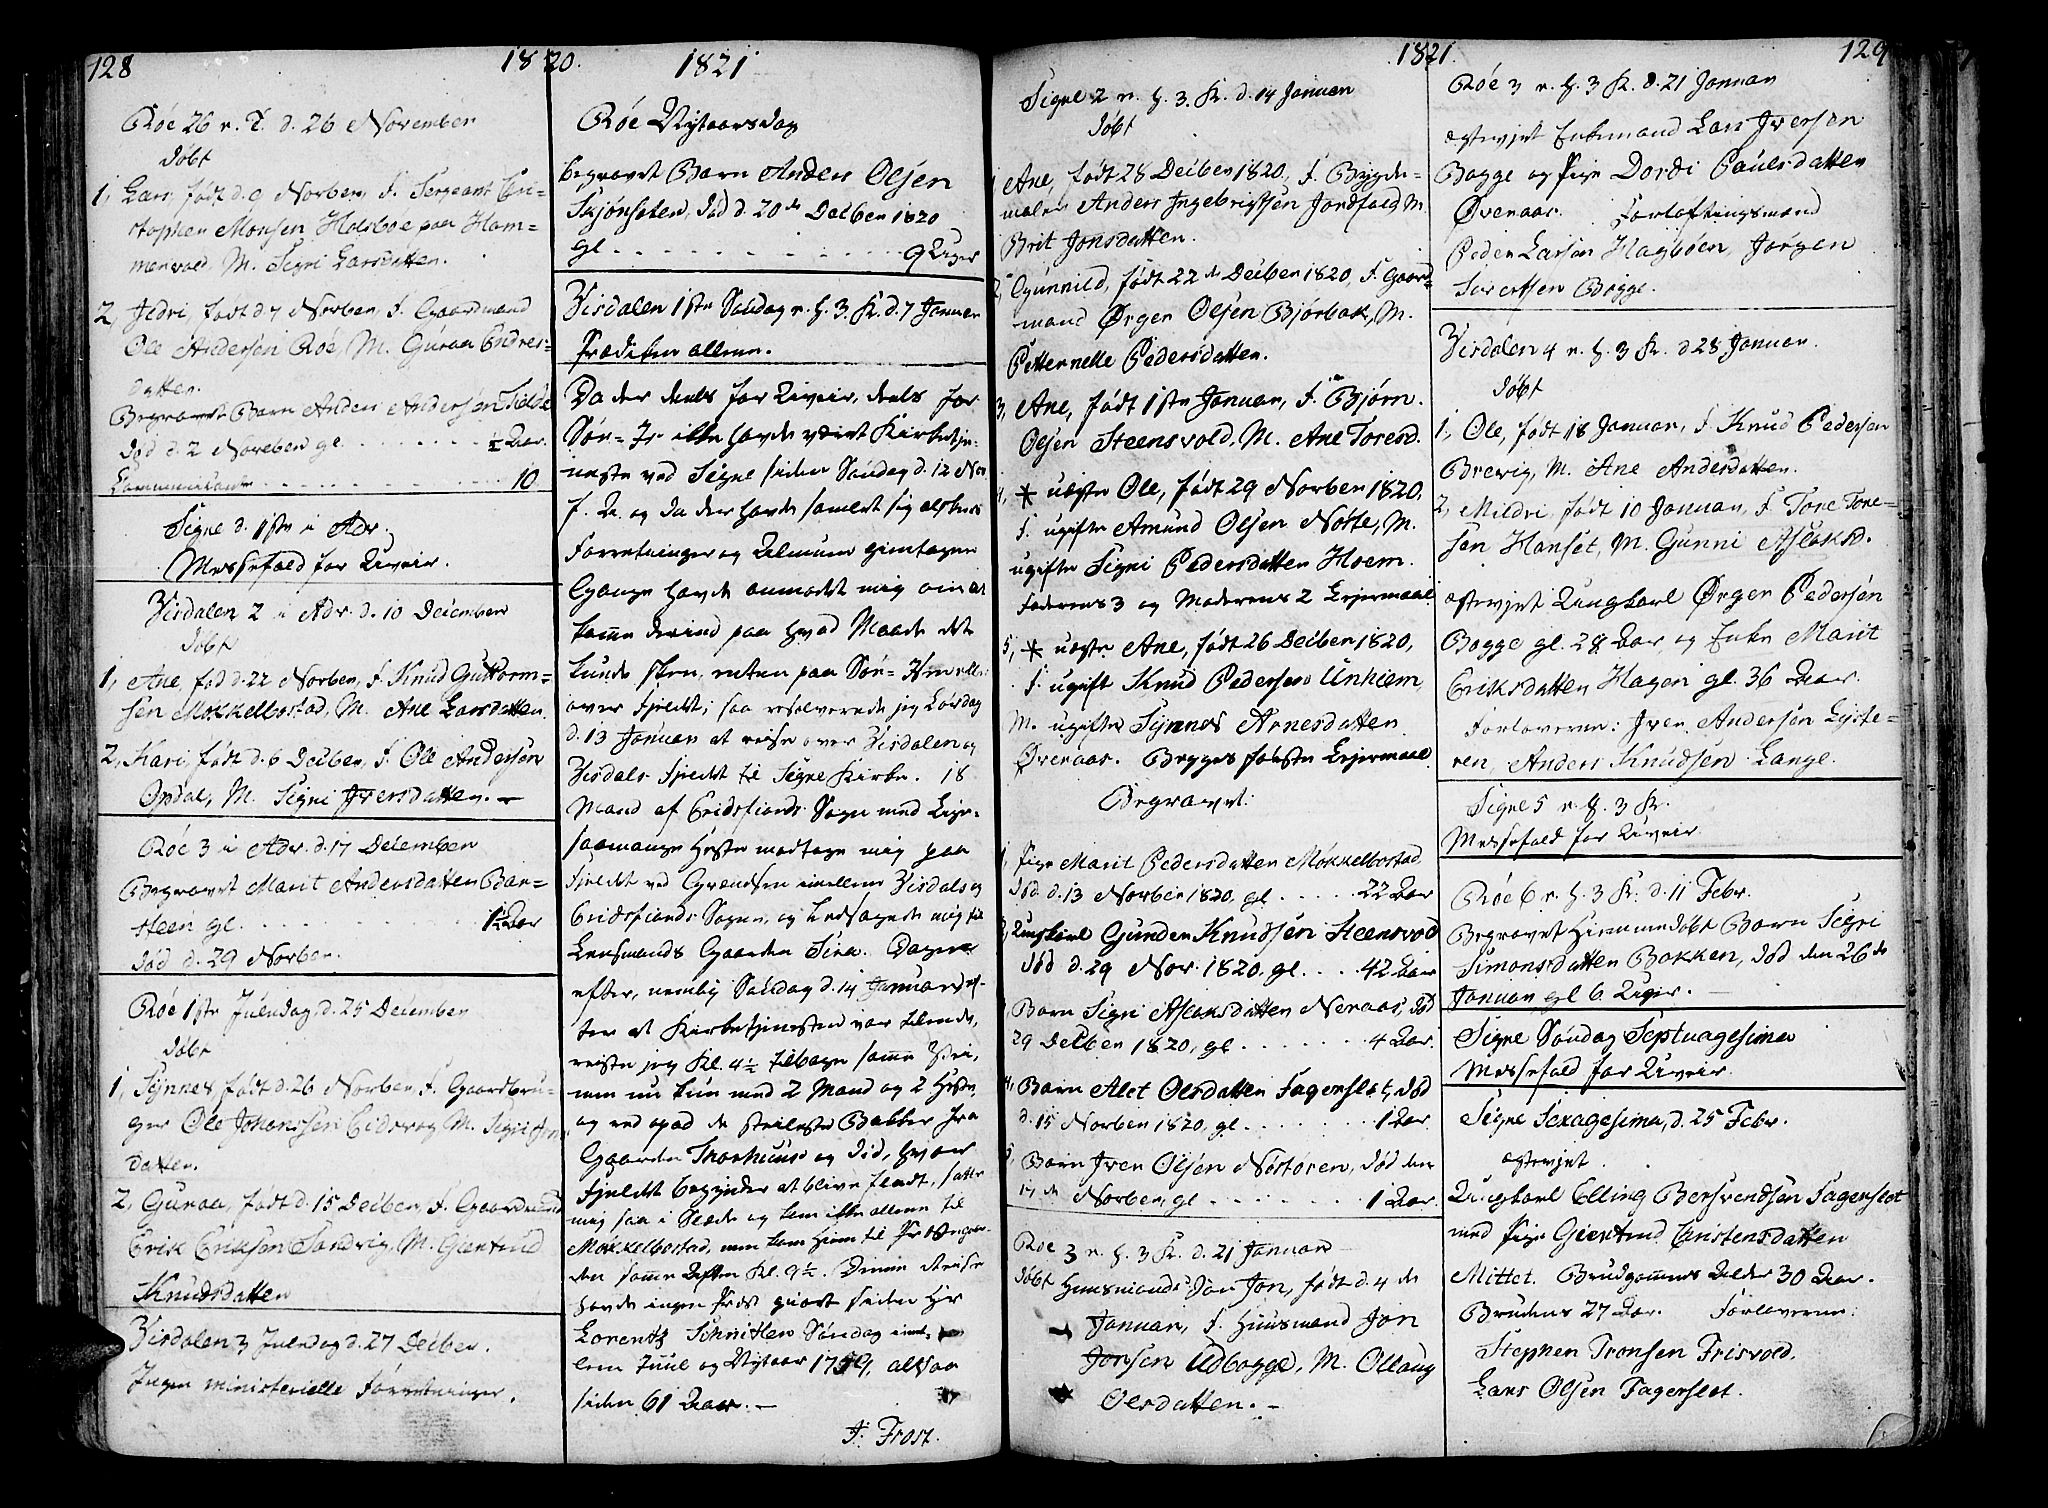 128
1820.
Røe 26 n. T. d. 26 November
døbt
1, Lars, født d. 9 Novben, F. Sergeant Cri-
stopher Monsen Holsboe paa Ham-
menvold, M. Signi Larsdatter.
2, Jedri, født d. 7 Novben, F. Gaardmand
Ole Andersen Røe, M. Guraa Endres-
datter.
Begravet Barn Anders Andersen Tielde
død d. 2 Novben gl. . . . . . . ½ Aar.
Communicant . . . . . . . 10
Signe d. 1ste i Adv.
Messefald for Uveir.
Visdalen 2 i Adv. d. 10 December
døbt
1, Ane, fød d. 22 Novben, F. Knud Guttorm-
sen Mokkelbostad, M. Ane Larsdatter.
2, Kari, født d. 6 Decben, F. Ole Andersen
Opdal, M. Signi Iversdatter. —
Røe 3 i Adv. d. 17 December
Begravet Marit Andersdatter Bar-
steen gl. . . . . . 1½ Aar
død d. 29 Novben.
Røe 1ste Juledag, d. 25 December
døbt
1, Synnes, født d. 26 Novben, F. Gaardbru-
ger Ole Johanssen Eidsvog, M. Signi Jon
datter.
2, Guraa, født d. 15 Decben, F. Gaardmand
Erik Eriksen Sandvig, M. Giertrud
Knudsdatter
Visdalen 3 Juledag d. 27 Decben.
Ingen ministerielle Forretninger.
1821
Røe Nytaarsdag
begravet Barn Anders Olsen
Skjønseter, død d. 20de Decben 1820
gl. . . . . . . . . . 9 Uger
Visdalen 1ste Søndag n. h. 3. K. d. 7 Januar
Prædiken allene.
Da der deels for Uveir, deels for
Sør-Is ikke havde været Kirketje-
neste ved Signe siden Søndag d. 12 Nov
f. A. og da der havde samlet sig alskens
Forretninger og Almuen gientagne
Gange havde anmodet mig om at
komme derind paa hvad Maade det
kunde skee, enten paa Sør-Isen eller
over Fjeldet; saa resolverede jeg Lørdag
d. 13 Januar at reise over Visdalen og
Visdals Fjeldet til Signe Kirke. 18
Mand af Eridsfiords Sogn med lige-
saamange Heste modtoge mig paa
Fjeldet ved Grændsen imellem Visdals og
Eridsfiords Sogne, og ledsagede mig til
Lensmands Gaarden Sira. Dagen
efter, nemlig Søndag d. 14 Januar, ef-
ter at Kirketjenesten var tilende,
reiste jeg Kl. 4½ tilbage samme Vei,
men nu kun med 2 Mand og 2 Heste,
og ved opad de steileste Bakker fra
Gaarden Thorhuus og did, hvor
Fjeldet begynder at blive fladt, satte
mig saa i Slæde og kom ikke allene til
Mokkelbostad, men kom hjem til Præstegaar-
den samme Aften Kl. 9½. Denne Reise
havde ingen Præst giort siden Hr.
Lorentz Schnitler Søndag imel-
lem Juul og Nytaar 1759, altsaa
siden 61 Aar. —
J: Frost.
1821.
129
Signe 2 n. h. 3. K. d. 14 Januar
døbt
1, Ane, født 28 Decben 1820, F. Bygde-
maler Anders Ingebrigtsen Jordfald, M.
Brit Jonsdatter.
2, Gunnild, født 22de Decben 1820, F. Gaard-
mand Ørgen Olsen Bjørbak, M.
Petternelle Pedersdatter.
3, Ane, født 1ste Januar, F. Bjørn
Olsen Steensvold, M. Ane Toresd.
4, * uægte Ole, født 29 Novben 1820,
F. ugifte Amund Olsen Nøtte, M.
ugifte Signi Pedersdatter Hoem.
Faderens 3 og Moderens 2 Lejermaal
5, * uægte Ane, født 26 Decben 1820,
F. ugift Knud Pedersen Unhiem,
M. ugifte Synnes Arnesdatter
Øveraas. Begges første Lejermaal.
Begravet:
1, Pige Marit Pedersdatter Mokkelbostad
død d. 13 Novben 1820, gl. . . . . 22 Aar
2, Ungkarl Gunder Knudsen Steensvod
død d. 29 Nov. 1820, gl. . . . 42 Aar
3, Barn Signi Aslaksdatter Neraas, død
29 Decben 1820, gl. . . . . . . 4 Aar.
4, Barn Alet Olesdatter Fagerslet, død
d. 15 Novben 1820, gl. . . . . . . 1 Aar.
5, Barn Iver Olsen Nørtøren, død den
17de Novben, gl. . . . . . . 1 Aar.
Røe 3 n. h. 3 K. d. 21 Januar
døbt Huusmands Søn Jon, født d. 4 de
Januar, F. Huusmand Jon
Jonsen Udbogge, M. Ollaug
Olesdatter. —
Røe 3 n. h. 3 K. d. 21 Januar
egteviet Enkemand Lars Iversen
Bogge og Pige Dordi Paulsdatter
Øveraas. Forloftingsmænd
Peder Larsen Hagbøen, Jørgen
Sivertsen Bogge.
Visdalen 4 n. h. 3 K. d. 28 Januar.
døbt
1, Ole, født 18 Januar, F. Knud Pedersen
Brevig, M. Ane Andersdatter.
2, Mildri, født 10 Januar, F. Tore Tore-
sen Hanset, M. Gunni Aslaksd.
egteviet Ungkarl Ørgen Pedersen
Bogge gl. 28 Aar og Enke Marit
Eriksdatter Hagen gl. 36 Aar.
Forlovere: Iver Andersen Lyste-
ren, Anders Knudsen Lange.
Signe 5 n. h. 3 K.
Messefald for Uveir.
Røe 6 n. h. 3 K. d. 11 Febr.
Begravet hjemmedøbt Barn Signi
Simonsdatter Bakken, død den 26de
Januar gl. 6 Uger. —
Signe Søndag Septuagesima
Messefald for Uveir.
Signe Sexagesima, d. 25 Febr.
egteviet.
Ungkarl Elling Bersvendsen Fagerslet
med Pige Giertrud Cristensdatter
Mittet. Brudgommens Alder 30 Aar.
Brudens 27 Aar. Forlovere:
Stephen Tronsen Frisvold.
Lars Olsen Fagerslet.